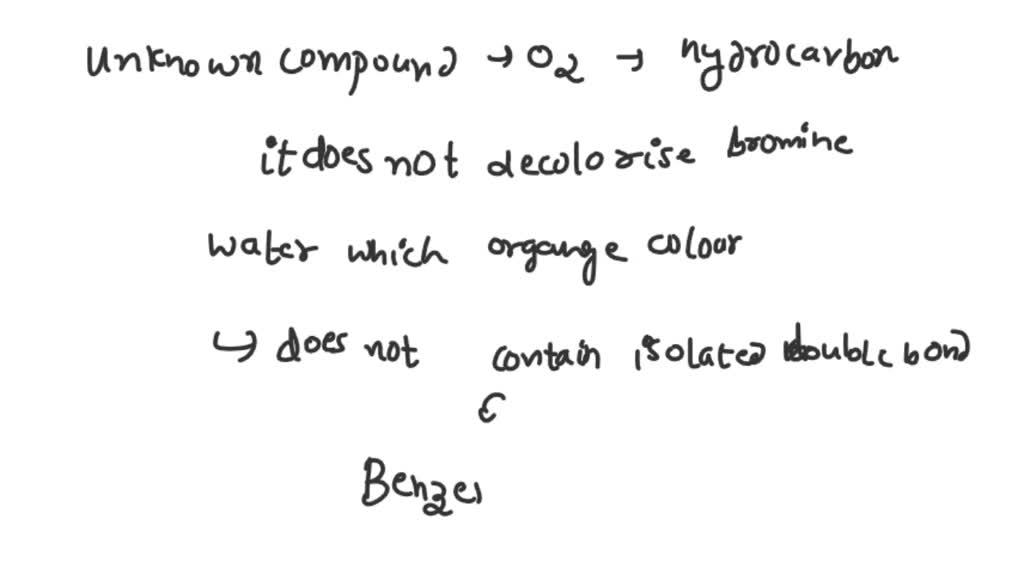 unknown compound → O2 → hydrocarbon
it does not decolorise bromine
water which organge colour
↪ does not contain isolated double bond
Benzen